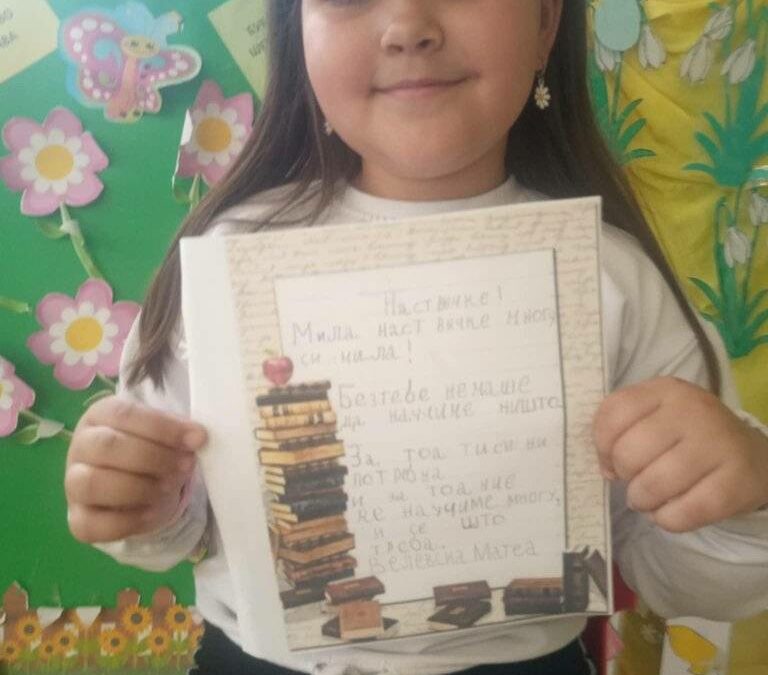 Наставчке!
Мила наст вичке многу
си мила!
Безтебе немаше
да научиме ништо
За тоа ти си ни
потребна
и за тоа ние
ќе научиме многу,
и се што
треба.
Велевска Матеа